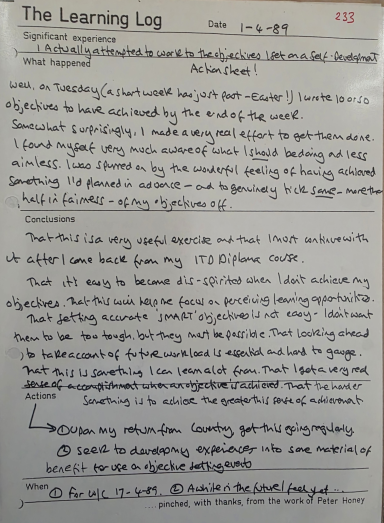 The Learning Log
Date 1-4-89
233
Significant experience
I Actually attempted to work to the objectives I set on a Self-Development
Action sheet!
What happened
Well, on Tuesday (a short week has just past - Easter!) I wrote 10 or so
objectives to have achieved by the end of the week.
Somewhat surprisingly, I made a very real effort to get them done.
I found myself very much aware of what I should be doing ad less
aimless. I was spurred on by the wonderful feeling of having achieved
something I'd planned in advance - and to genuinely tick some - more than
half in fairness - of my objectives off.
Conclusions
That this is a very useful exercise and that I must continue with
it after I come back from my ITD Diploma course.
That it's easy to become dis-spirited when I don't achieve my
objectives. That this will help me focus on perceiving learning opportunities.
That setting accurate 'SMART' objectives is not easy - I don't want
them to be too tough, but they must be possible. That looking ahead
to take account of future workload is essential and hard to gauge.
That this is something I can learn a lot from. That I got a very real
sense of accomplishment when an objective is achieved. That the harder
something is to achieve the greater this sense of achievement.
Actions
① Upon my return from Coventry, get this going regularly.
② Seek to develop my experiences into some material of
benefit for use on objective setting events
When
① For W/C 17-4-89. ② A while in the future I feel yet ...
.... pinched, with thanks, from the work of Peter Honey